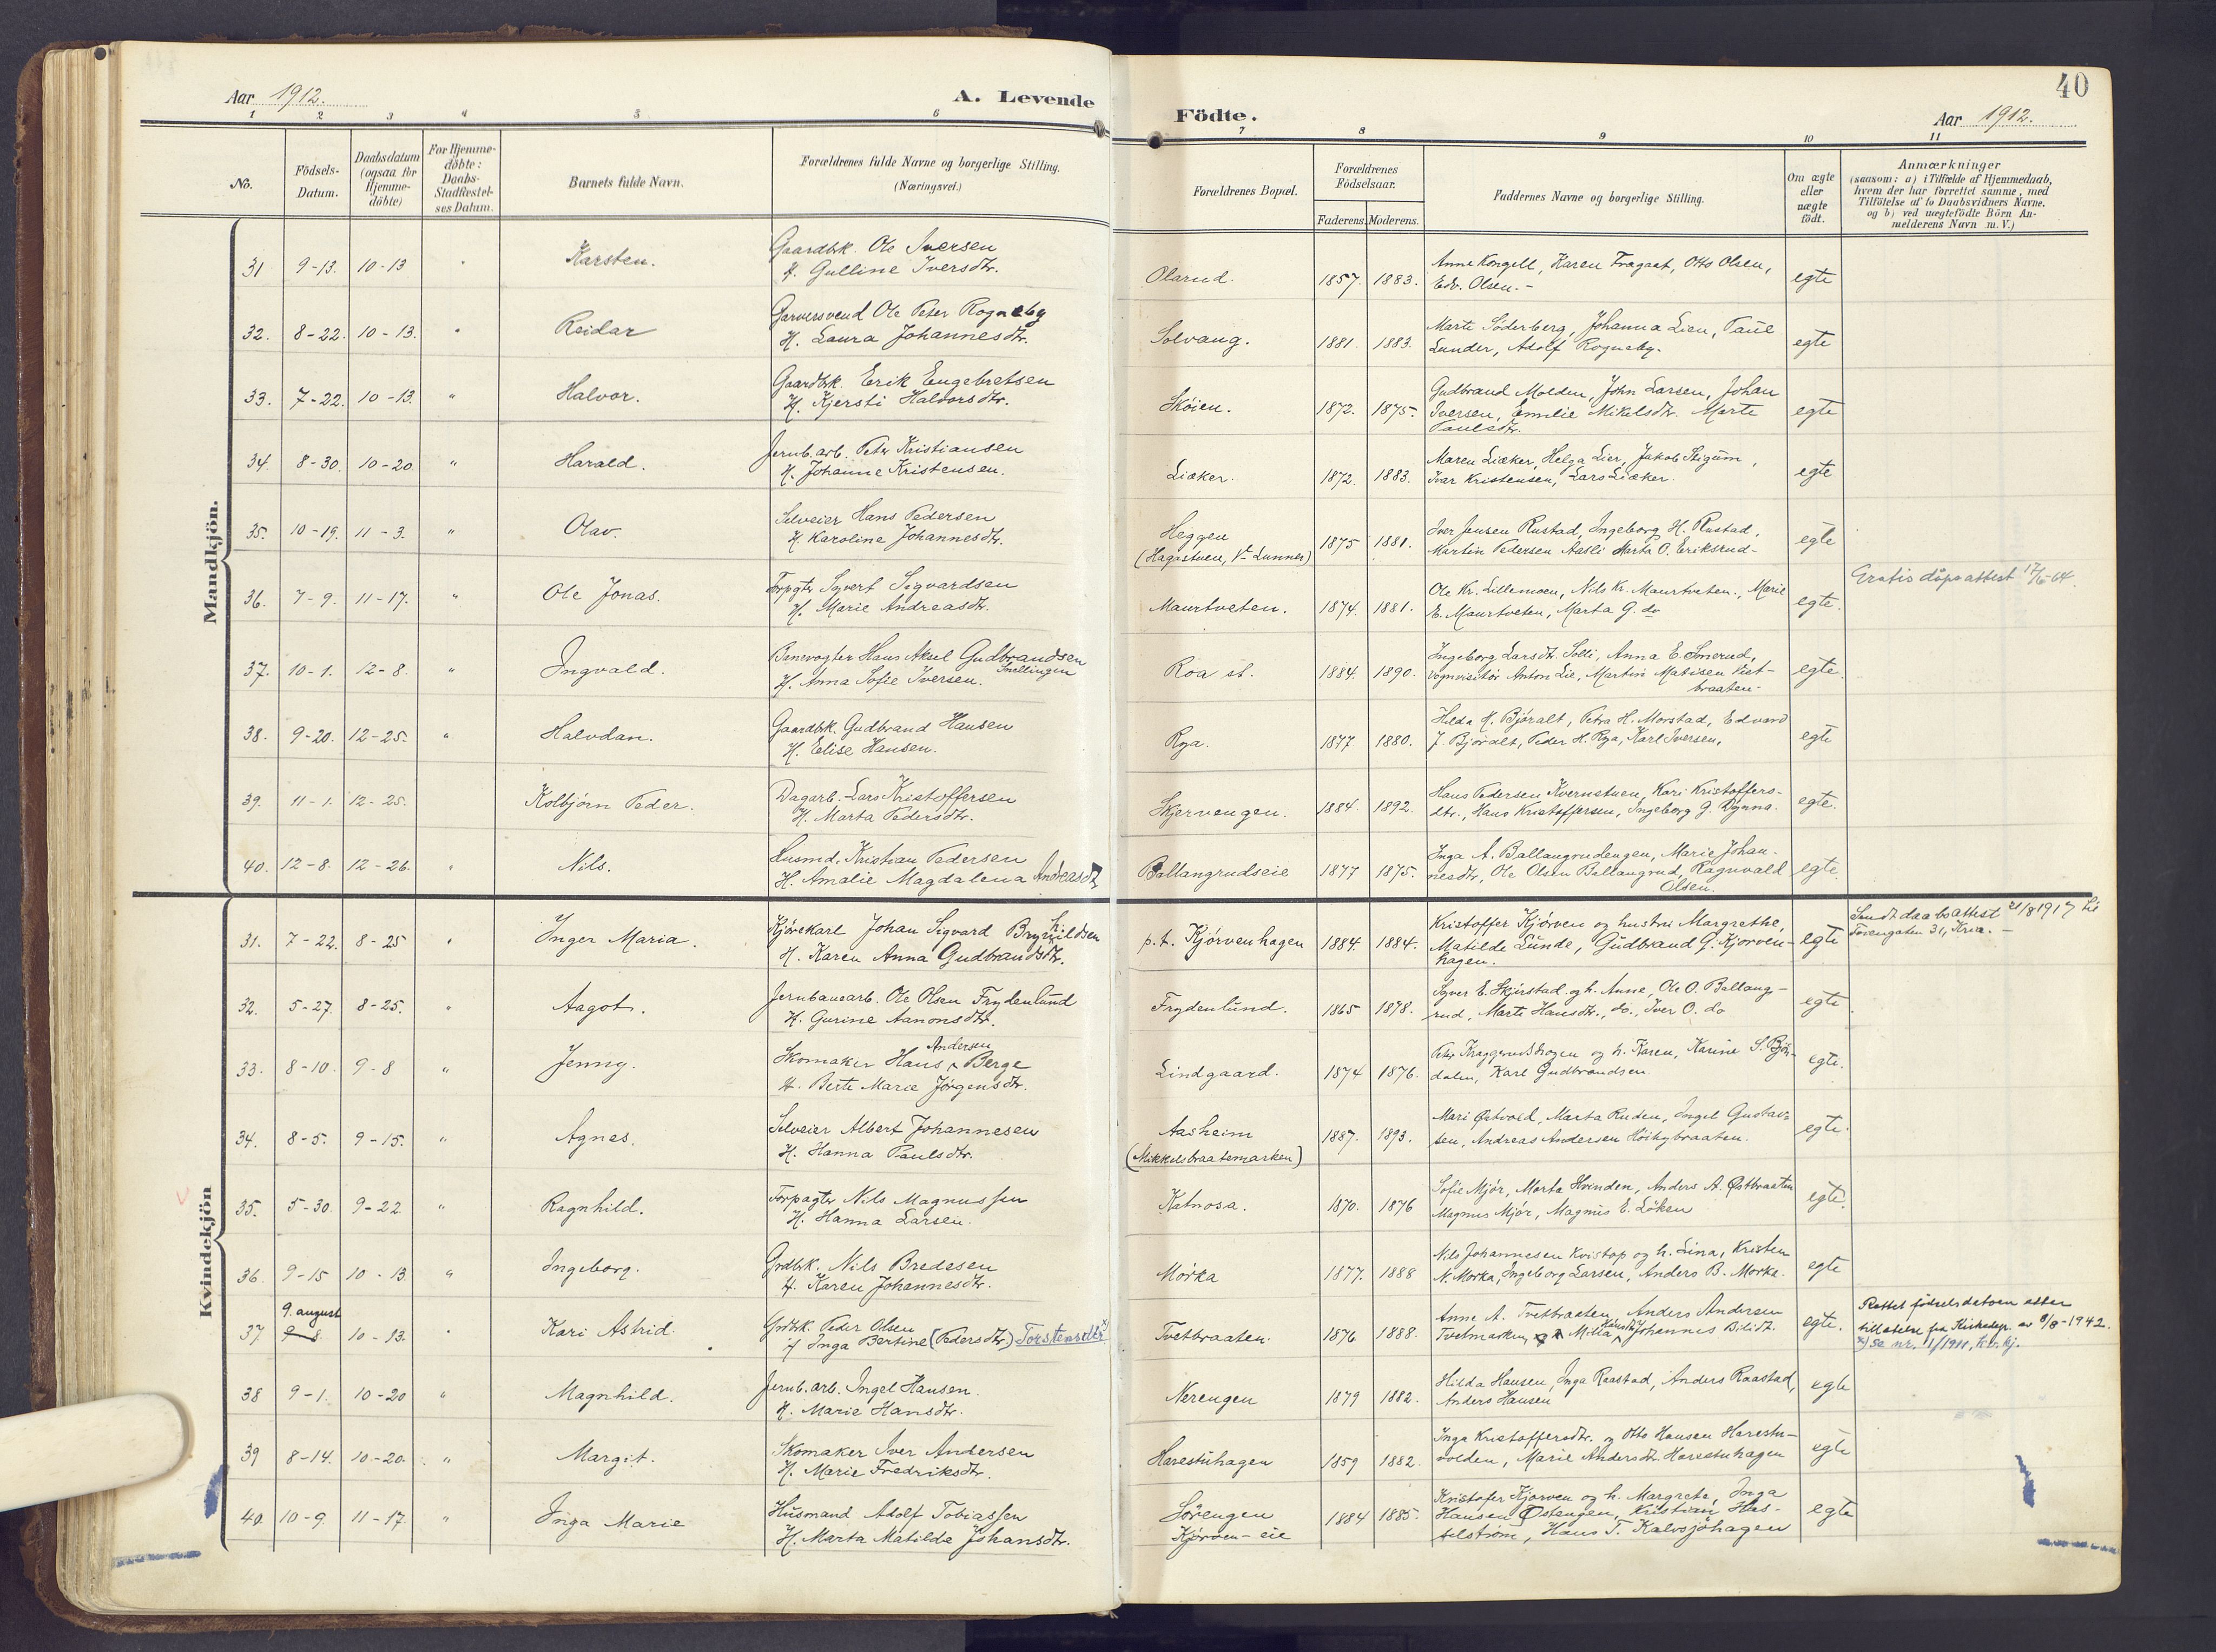 40
Aar 1912.
A. Levende Födte.
Aar 1912.
1 2 3 4 5 6 7 8 9 10 11
No.
Födsels-Datum.
Daabsdatum (ogsaa for Hjemme-döbte)
For Hjemme-döbte: Daabs-Stadfæstel-ses Datum.
Barnets fulde Navn.
Forældrenes fulde Navne og borgerlige Stilling.
(Næringsvei.)
Forældrenes Bopæl.
Forældrenes Födselsaar.
Faderens. Moderens.
Faddernes Navne og borgerlige Stilling.
Om ægte eller uægte födt.
Anmærkninger
(saasom: a) i Tilfælde af Hjemmedaab,
hvem der har forrettet samme, med
Tilföielse af to Daabsvidners Navne.
og b) ved uægtefödte Börn An-
melderens Navn m. V.)
Mandkjön.
31 9-13. 10-13 " Karsten. Gaardbk. Ole Iversen
H. Gulline Iversdtr. Olarud. 1857. 1883. Anne Kongell, Karen Fragaat, Otto Olsen,
Edv. Olsen.- egte
32. 8-22. 10-13. " Reidar Garversvend Ole Peter Rogneby
H. Laura Johannesdtr. Solvang. 1881. 1883. Marte Söderberg, Johanna Lien, Paul
Lunder, Adolf Rogneby. egte
33. 7-22. 10-13. " Halvor. Gaardbk. Erik Engebretsen
H. Kjersti Halvorsdtr. Skøien. 1872. 1875. Gudbrand Molden, John Larsen, Johan
Iversen, Emilie Mikelsdtr. Marte
Paulsdtr. egte
34. 8-30. 10-20 " Harald. Jernb.arb. Peter Kristiansen
H. Johanne Kristensen. Liøker. 1872. 1883. Maren Liøker, Helga Lier, Jakob Stigum,
Ivar Kristensen, Lars Liøker. egte
35. 10-19. 11-3. " Olav. Selveier Hans Pedersen
H. Karoline Johannesdtr. Heggen
(Hagastuen, Vt Lunner) 1875 1881. Iver Jensen Rustad, Ingeborg H. Rustad,
Martin Pedersen Aasli Marta O. Eriksrud- egte
36. 7-9. 11-17. " Ole Jonas. Forpgtr Syvert Sigvardsen
H. Marie Andreasdtr. Maurtveten. 1874. 1881. Ole Kr. Lillemoen, Nils Kr. Maurtveten., Marie
E. Maurtveten, Marta G. do egte. Gratis dåpsattest 17/6-64.
37. 10-1. 12-8. " Ingvald. Banevogter Hans Aksel Gudbrandsen
Snellingen
H. Anna Sofie Iversen. Roa st. 1884. 1890. Ingeborg Larsdtr. Solli, Anna E. Smerud,
Vognvisitør Anton Lie, Martin Matisen
braaten- egte.
38. 9-20. 12-25. " Halvdan. Gaardbk. Gudbrand Hansen
H. Elise Hansen. Rya. 1877 1880. Hilda H. Bjøralt, Petra H. Morstad, Edvard
J. Bjøralt, Peder H. Rya, Karl Iversen, egte
39. 11-1. 12-25. Kolbjørn Peder. Dagarb. Lars Kristoffersen
H. Marta Pedersdtr. Skjervengen. 1884. 1892. Hans Pedersen Kvernstuen, Kari Kristoffers-
dtr., Hans Kristoffersen, Ingeborg G. Dynna. egte.
40. 12-8. 12-26. " Nils. Husmd. Kristian Pedersen
H. Amalie Magdalena Andreasdtr Ballangrudseie 1877 1875. Inga A. Ballangrudengen, Marie Johan-
nesdtr, Ole Olsen Ballangrud, Ragnvald
Olsen. egte.
Kvindekjön
31. 7-22. 8-25 " Inger Maria. Kjørekarl Johan Sigvard Brynhildsen
H. Karen Anna Gudbrandsdtr. p.t. Kjørvenhagen 1884. 1884. Kristoffer Kjørven og hustru Margrethe,
Matilde Lunde, Gudbrand G. Kjørven-
hagen. egte Sendt daabsattest 21/8 1917 til
31, Kria.-
32. 5-27. 8-25. " Aagot. Jernbanearb. Ole Olsen Frydenlund
H. Gurine Aanonsdtr. Frydenlund. 1865 1878. Syver E. Skjerstad og h. Anne, Ole O. Ballang-
rud, Marte Hansdtr., do., Iver O. do egte
33. 8-10. 9-8 " Jenny. Andersen
Skomaker Hans ^ Berge
H. Berte Marie Jørgensdtr. Lindgaard. 1874 1876. Peter Kraggerudshagen og h. Karen, Karine S. Bjør-
dalen, Karl Gudbrandsen egte.
34. 8-5. 9-15. " Agnes. Selveier Albert Johannesen
H. Hanna Paulsdtr. Aasheim
(Mikkelsbraatemarken) 1887. 1893. Mari Østvold, Marta Ruden, Ingel Gustav-
sen, Andreas Andersen Høibybraaten. egte.
35. 5-30 9-22. " Ragnhild. Forpagter Nils Magnussen
H. Hanna Larsen. Katnosa. 1870. 1876 Sofie Mjør, Marta Hvinden, Anders A. Østbraaten
Magnus Mjør, Magnus E. Løken egte.
36. 9-15 10-13. " Ingeborg. Grdbk. Nils Bredesen
H. Karen Johannesdtr. Mørka 1877. 1888 Nils Johannesen Kvistop og h. Lina, Kristen
N. Mørka, Ingeborg Larsen, Anders B. Mørka. egte
9. august
37 9-8. 10-13. " Kari Astrid. Grdbk. Peder Olsen
H Inga Bertine (Pedersdtr.) Torstensdtr x) Tvetbraaten. 1876 1888. Anne A. Tvetbraaten, Anders Andersen
Tvetmarken, Milla Hansdtr Johannes Bilidt. egte. Rettet fødselsdatoen etter
tillatelse fra Kirkedep. av 8/8-1942.
x) se nr. 1/1911, kv.kj.
38 9-1. 10-20 " Magnhild. Jernb.arb. Ingel Hansen.
H. Marie Hansdtr. Nerengen 1879 1882. Hilda Hansen, Inga Raastad, Anders Raastad,
Anders Hansen egte
39 8-14. 10-20. " Margit. Skomaker Iver Andersen
H. Marie Fredriksdtr. Harestuhagen 1859 1882. Inga Kristoffersdtr. og Otto Hansen Harestu-
volden, Marie Andersdtr. Harestuhagen egte
40. 10-9. 11-17. " Inga Marie Husmand Adolf Tobiassen
H. Marta Matilde Johansdtr. Sörengen
Kjørven-eie 1884 1885. Kristofer Kjørven og h. Margrete, Inga
Hansen Østengen, Kristian Has-
selstrøm, Hans T. Kalvsjøhagen egte